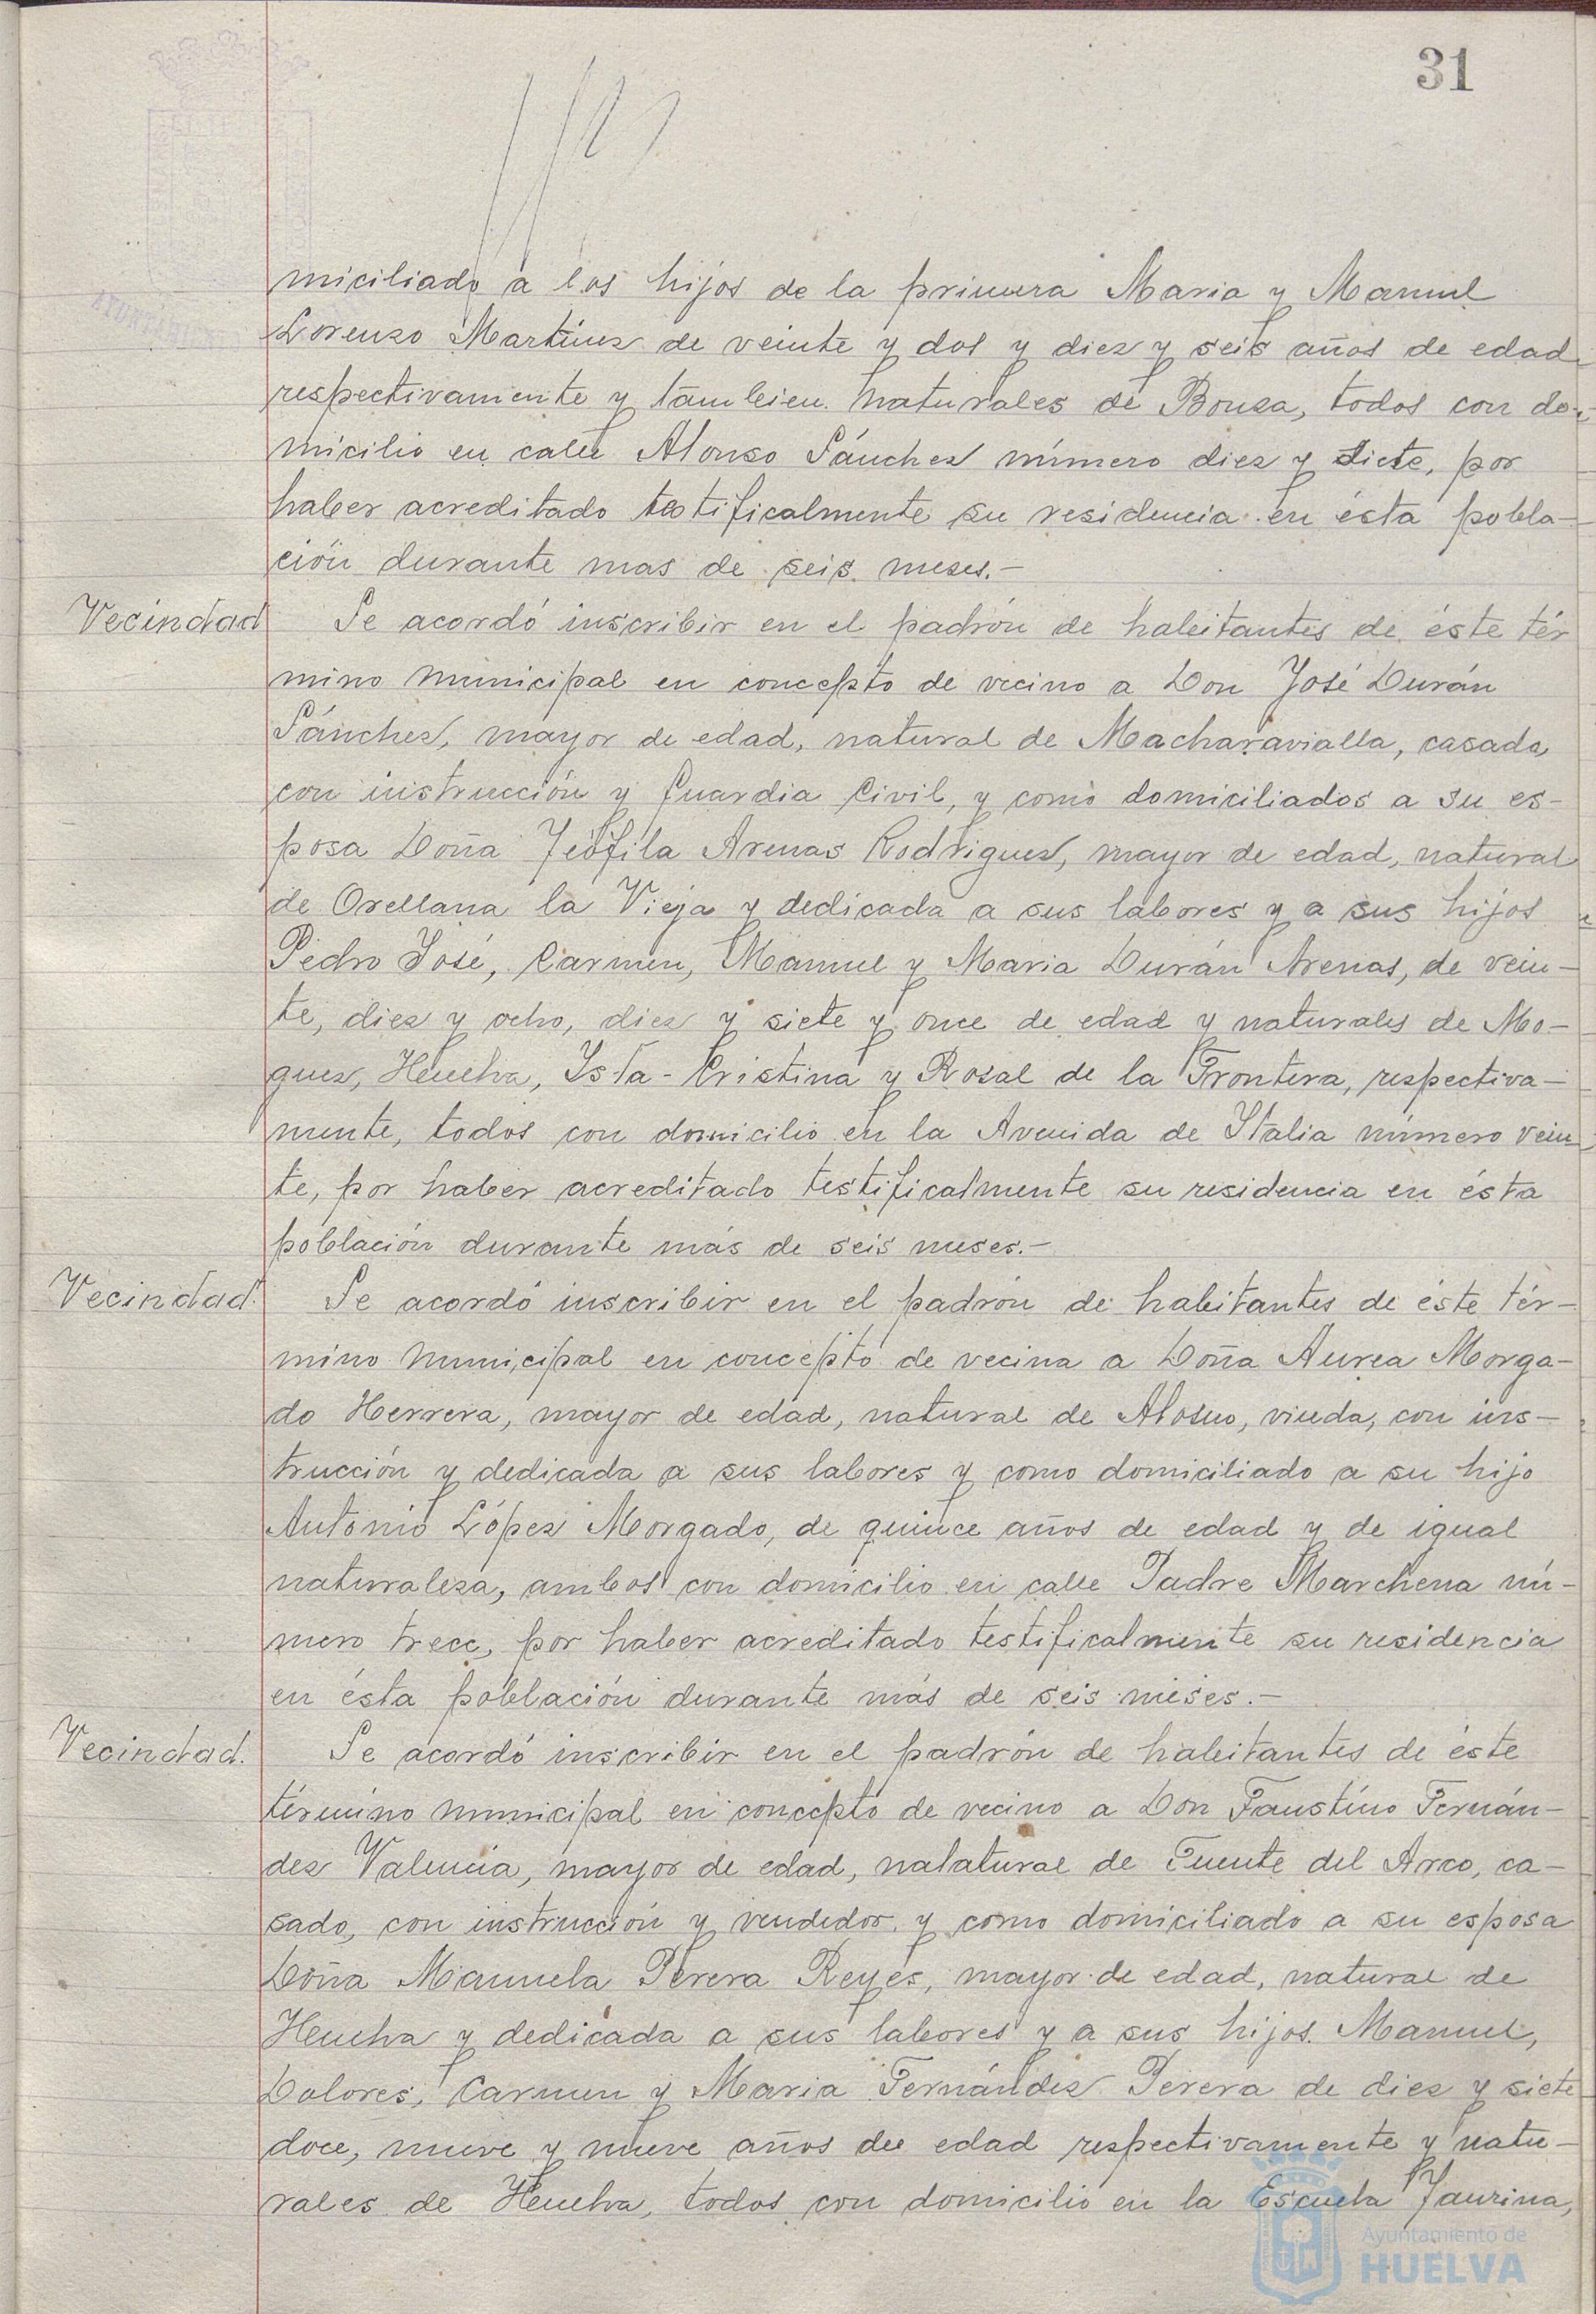 31
miciliado a los hijos de la primera Maria y Manuel
Lorenzo Martinez de veinte y dos y diez y seis años de edad
respectivamente y tambien naturales de Bonza, todos con do-
micilio en calle Alonso Sánchez número diez y siete, por
haber acreditado testificalmente su residencia en ésta pobla-
ción durante mas de seis meses.-
Vecindad Se acordó inscribir en el padrón de habitantes de éste tér
mino municipal en concepto de vecino a Don José Durán
Sánchez, mayor de edad, natural de Macharavialla, casado,
con instrucción y Guardia Civil, y como domiciliados a su es-
posa Doña Teófila Arenas Rodriguez, mayor de edad, natural
de Orellana la Vieja y dedicada a sus labores y a sus hijos
Pedro José, Carmen, Manuel y Maria Durán Arenas, de vein-
te, diez y ocho, diez y siete y once de edad y naturales de Mo-
guer, Huelva, Ysla-Cristina y Rosal de la Frontera, respectiva-
mente, todos con domicilio en la Avenida de Ytalia número vein
te, por haber acreditado testificalmente su residencia en ésta
población durante más de seis meses.-
Vecindad. Se acordó inscribir en el padrón de habitantes de éste tér-
mino municipal en concepto de vecina a Doña Aurea Morga-
do Herrera, mayor de edad, natural de Alosno, viuda, con ins-
trucción y dedicada a sus labores y como domiciliado a su hijo
Antonio López Morgado, de quince años de edad y de igual
naturaleza, ambos con domicilio en calle Padre Marchena nú-
mero trece, por haber acreditado testificalmente su residencia
en ésta población durante más de seis meses.-
Vecindad. Se acordó inscribir en el padrón de habitantes de éste
término municipal en concepto de vecino a Don Faustino Fernán-
dez Valencia, mayor de edad, nalatural de Fuente del Arco, ca-
sado, con instrucción y vendedor y como domiciliado a su esposa
Doña Manuela Perera Reyes, mayor de edad, natural de
Huelva y dedicada a sus labores y a sus hijos Manuel,
Dolores, Carmen y Maria Fernández Perera de diez y siete
doce, nueve y nueve años de edad respectivamente y natu-
rales de Huelva, todos con domicilio en la Escuela Taurina,
Ayuntamiento de
HUELVA